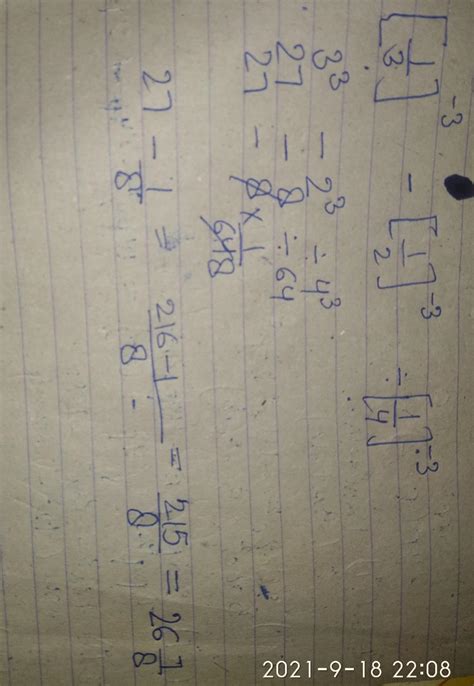 [1/3]^-3 - [1/2]^-3 ÷ [1/4]^-3
3^3 - 2^3 ÷ 4^3
27 - 8 ÷ 64
27 - 8 × 1/64 8
27 - 1/8 = 216-1/8 = 215/8 = 26 7/8
2021-9-18 22:08